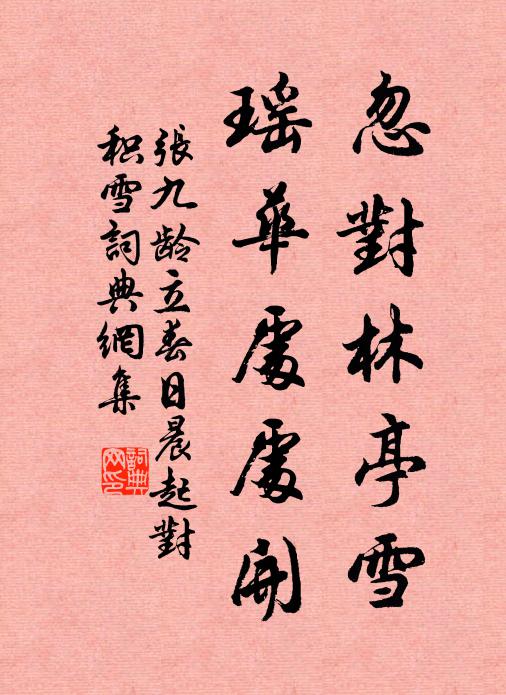 忽對林亭雪
瑶華處處開
張九龄立春日晨起對
积雪詞典網集
詞典
网印